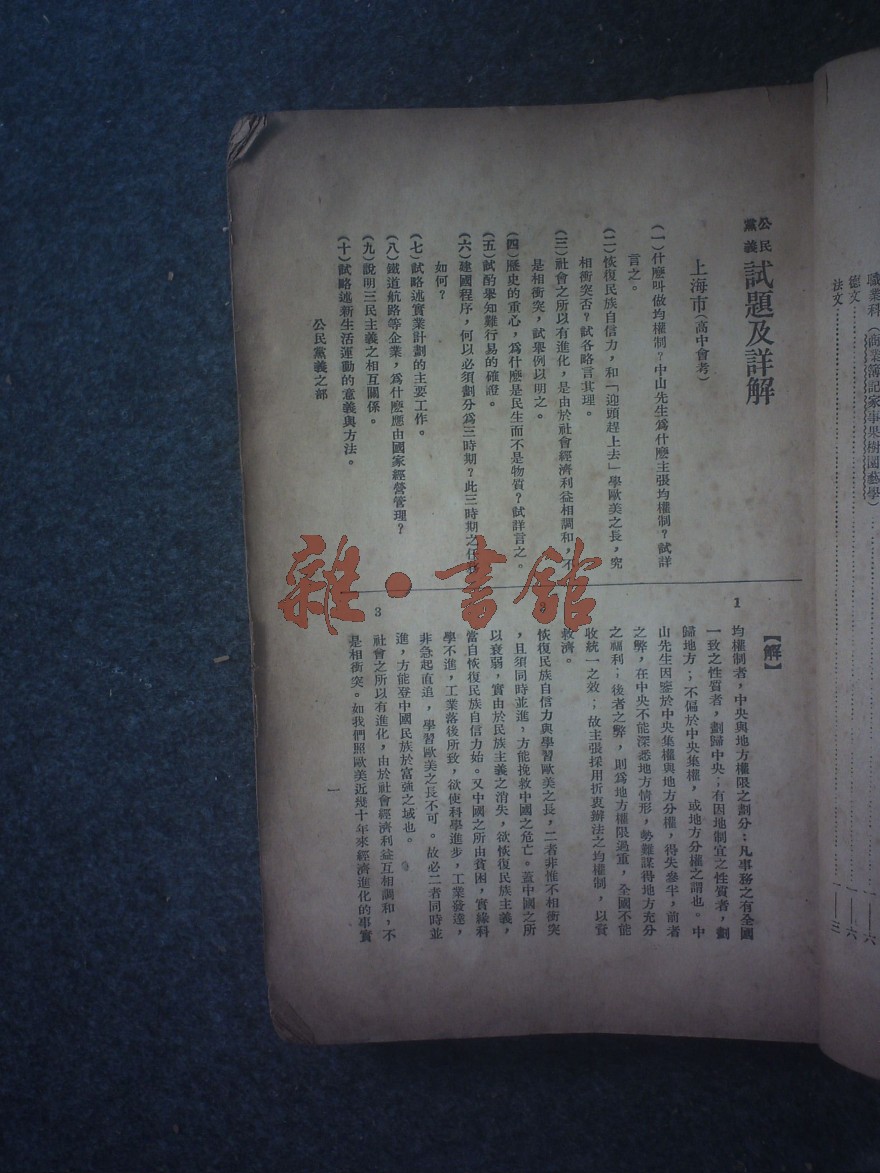 職業科（商業簿記家事果樹園藝學）…………一——六
德文…………一——六
法文…………一——三
公民黨義試題及詳解
上海市（高中會考）
（一）什麼叫做均權制？中山先生爲什麼主張均權制？試詳
言之。
（二）恢復民族自信力，和「迎頭趕上去」學歐美之長，究
相衝突否？試各略言其理。
（三）社會之所以有進化，是由於社會經濟利益相調和，不
是相衝突，試舉例以明之。
（四）歷史的重心，爲什麼是民生而不是物質？試詳言之。
（五）試酌舉知難行易的確證。
（六）建國程序，何以必須劃分爲三時期？此三時期之任務
如何？
（七）試略述實業計劃的主要工作。
（八）鐵道航路等企業，爲什麼應由國家經營管理？
（九）說明三民主義之相互關係。
（十）試略述新生活運動的意義與方法。
公民黨義之部
【解】
1 均權制者，中央與地方權限之劃分；凡事務之有全國
一致之性質者，劃歸中央；有因地制宜之性質者，劃
歸地方；不偏於中央集權，或地方分權之謂也。中
山先生因鑒於中央集權與地方分權，得失參半，前者
之弊，在中央不能深悉地方情形，勢難謀得地方充分
之福利；後者之弊，則爲地方權限過重，全國不能
收統一之效；故主張採用折衷辦法之均權制，以資
救濟。
2 恢復民族自信力與學習歐美之長，二者非惟不相衝突
，且須同時並進，方能挽救中國之危亡。蓋中國之所
以衰弱，實由於民族主義之消失，欲恢復民族主義，
當自恢復民族自信力始。又中國之所由貧困，實緣科
學不進，工業落後所致，欲使科學進步，工業發達，
非急起直追，學習歐美之長不可。故必二者同時並
進，方能登中國民族於富強之域也。
3 社會之所以有進化，由於社會經濟利益互相調和，不
是相衝突。如我們照歐美近幾十年來經濟進化的事實
一
雜·書館